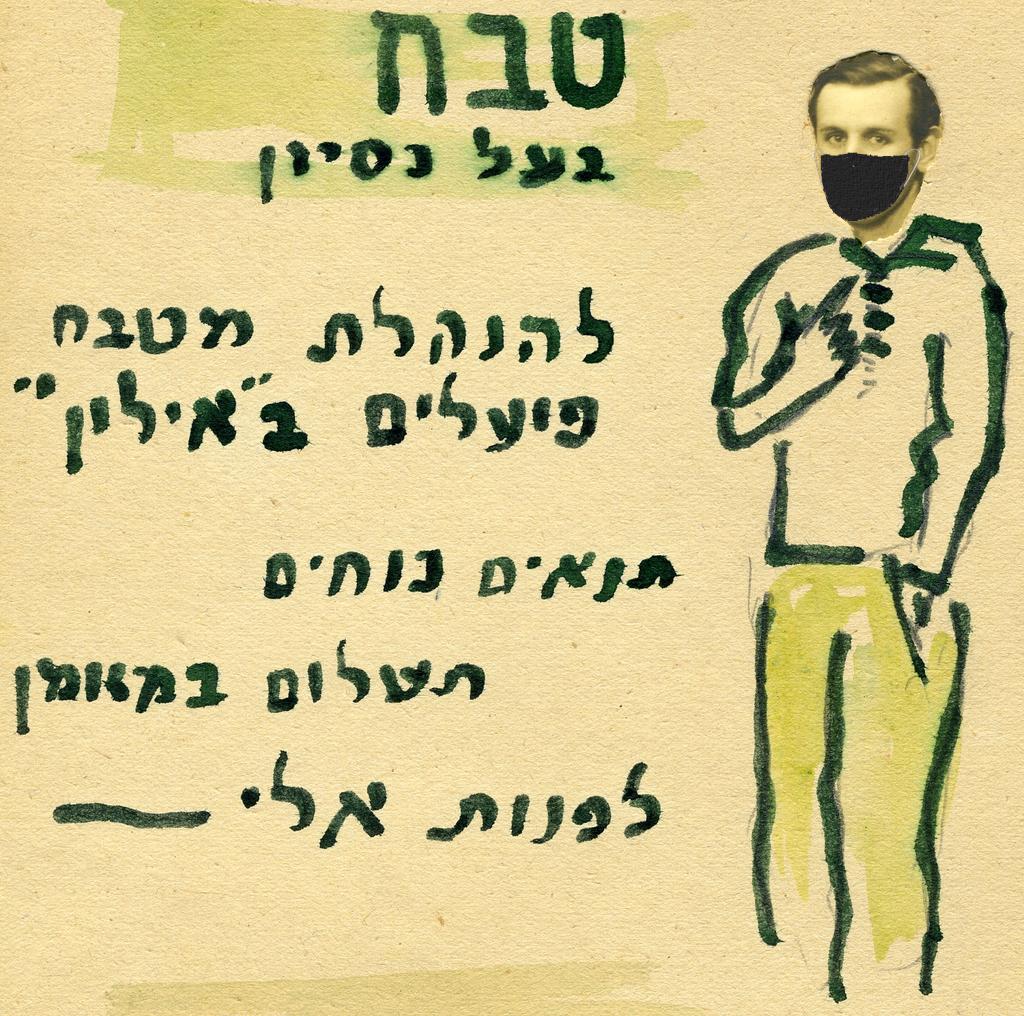 טבח
בעל נסיון
להנהלת מטבח
פועלים ב"אילין"
תנאים נוחים
תשלום במזומן
לפנות אלי —